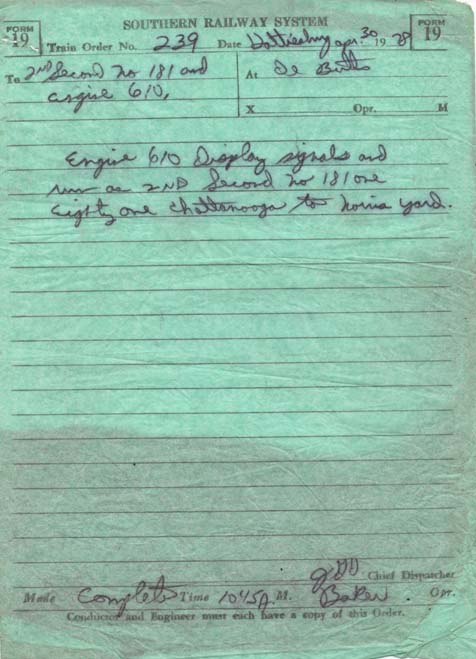 FORM 19 SOUTHERN RAILWAY SYSTEM FORM 19
Train Order No. 239 Date Hattiesburg Apr. 30 19 78
To 2ND Second No 181 and At De Butts
engine 610,
X Opr. M
Engine 610 Display signals and
run as 2ND Second No 181 one
Eighty one Chattanooga to Norris yard.
Chief Dispatcher
Made Complete Time 1045A M. Baker Opr.
Conductor and Engineer must each have a copy of this Order.